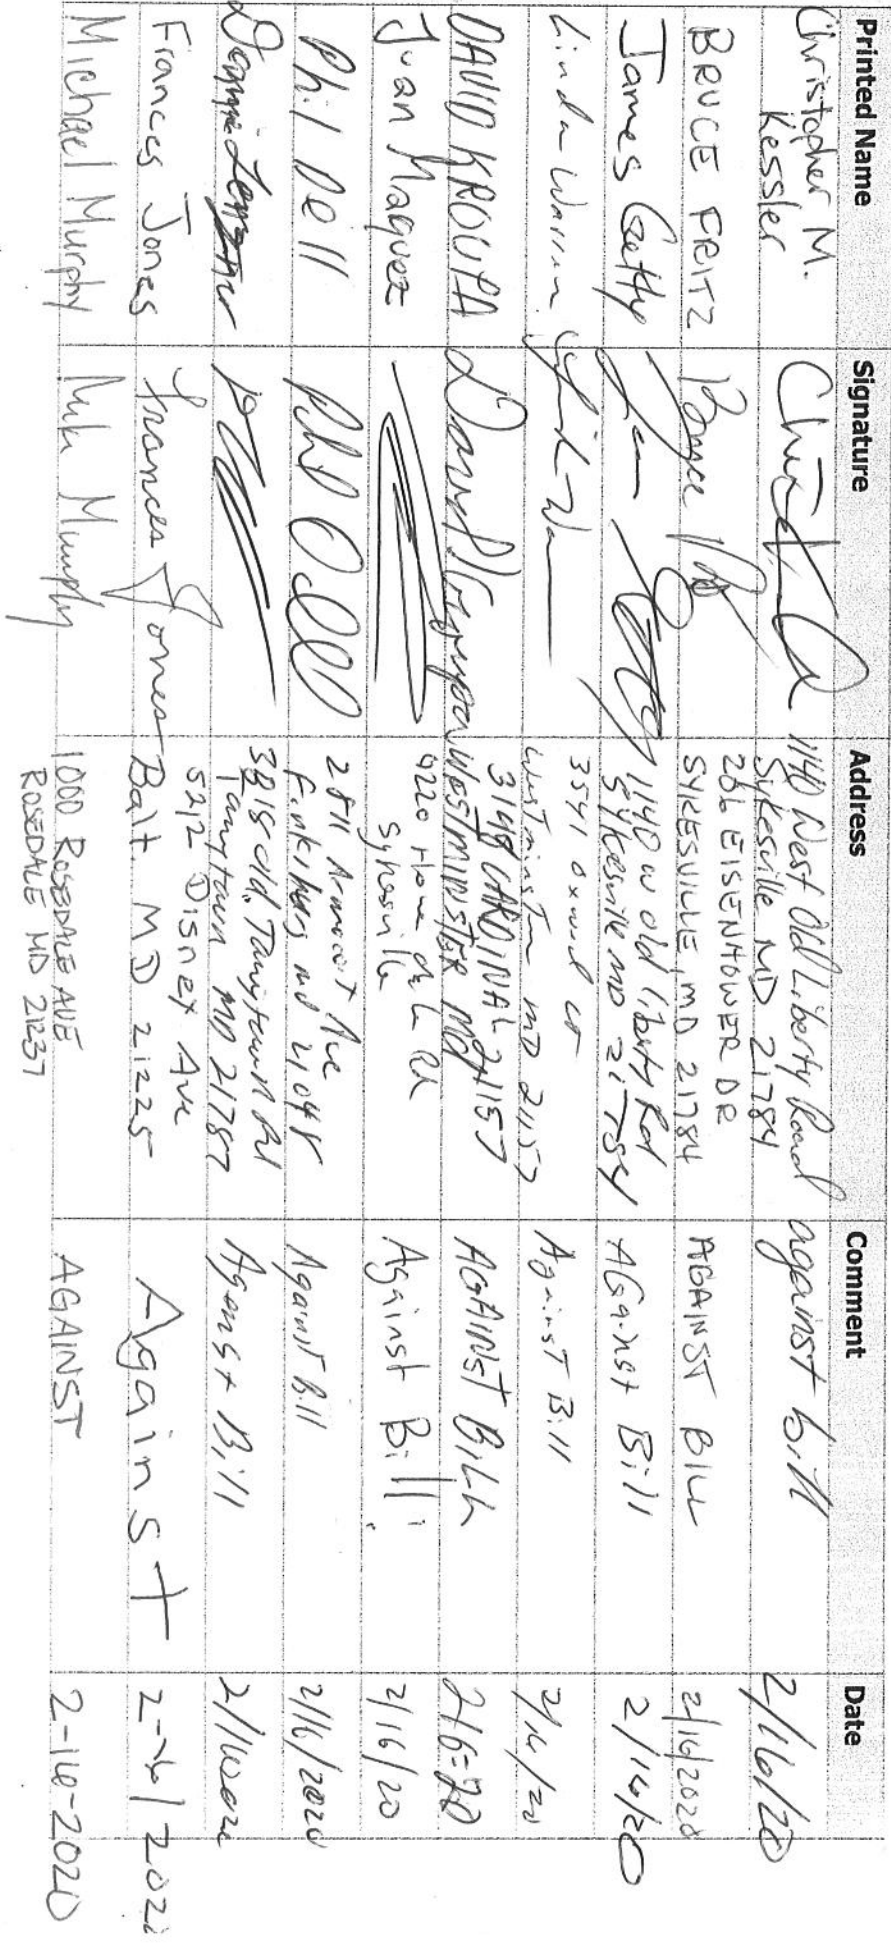 Printed Name Signature Address Comment Date
Christopher M. Kessler 1140 West Old Liberty Road Sykesville MD 21784 against bill 2/16/20
BRUCE FRITZ EISENHOWER DR SYKESVILLE, MD 21784 AGAINST BILL 2/16/2020
James Getty 1140 W old liberty Rd Sykesville MD 21784 AGainst Bill 2/16/20
Linda Warren 3541 Oxwed ct Westminster MD 21157 Against Bill 2/16/20
DAVID KROUPA 3148 CARDINAL WESTMINSTER Md 21157 AGAINST BILL 2/16-20
Juan Maquez Rd Against Bill 2/16/20
Phil Dell Phil Dell Ave Finksburg md 21048 Against Bill 2/16/2020
3818 old Taneytown Rd Taneytown MD 21787 Against Bill
Frances Jones Frances Jones 5212 Disney Ave Balt. MD 21225 Against
Michael Murphy Mike Murphy 1000 ROSEDALE AVE ROSEDALE MD 21237 AGAINST 2-16-2020